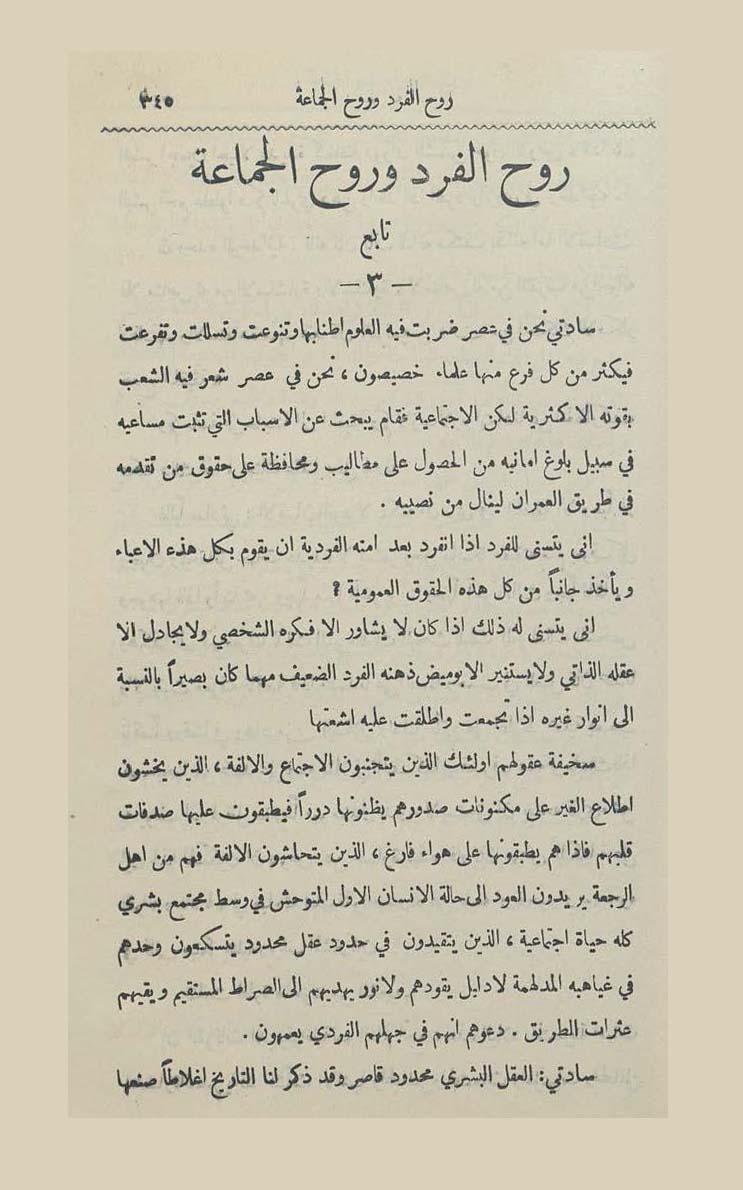 روح الفرد وروح الجماعة ٣٤٥
روح الفرد وروح الجماعة
تابع
— ٣ —
سادتي نحن في عصر ضربت فيه العلوم اطنابها وتنوعت وتسللت وتفرعت
فيكثر من كل فرع منها علماء خصيصون، نحن في عصر شعر فيه الشعب
بقوته الاكثرية لكن الاجتماعية فقام يبحث عن الاسباب التي تثبت مساعيه
في سبيل بلوغ امانيه من الحصول على مطاليب ومحافظة على حقوق من تقدمه
في طريق العمران لينال من نصيبه .
انى يتسنى للفرد اذا انفرد بعد امته الفردية ان يقوم بكل هذه الاعباء
ويأخذ جانباً من كل هذه الحقوق العمومية ؟
انى يتسنى له ذلك اذا كان لا يشاور الا فكره الشخصي ولا يجادل الا
عقله الذاتي ولا يستنير الا بوميض ذهنه الفرد الضعيف مهما كان بصيراً بالنسبة
الى انوار غيره اذا تجمعت واطلقت عليه اشعتها
سخيفة عقولهم اولئك الذين يتجنبون الاجتماع والالفة، الذين يخشون
اطلاع الغير على مكنونات صدورهم يظنونها درراً فيطبقون عليها صدفات
قلبهم فاذا هم يطبقونها على هواء فارغ، الذين يتحاشون الالفة فهم من اهل
الرجعة يريدون العود الى حالة الانسان الاول المتوحش في وسط مجتمع بشري
كله حياة اجتماعية، الذين يتقيدون في حدود عقل محدود يتسكعون وحدهم
في غياهبه المدلهمة لا دليل يقودهم ولا نور يهديهم الى الصراط المستقيم ويقيهم
عثرات الطريق . دعوهم انهم في جهلهم الفردي يعمهون .
سادتي: العقل البشري محدود قاصر وقد ذكر لنا التاريخ اغلاطاً صنعها